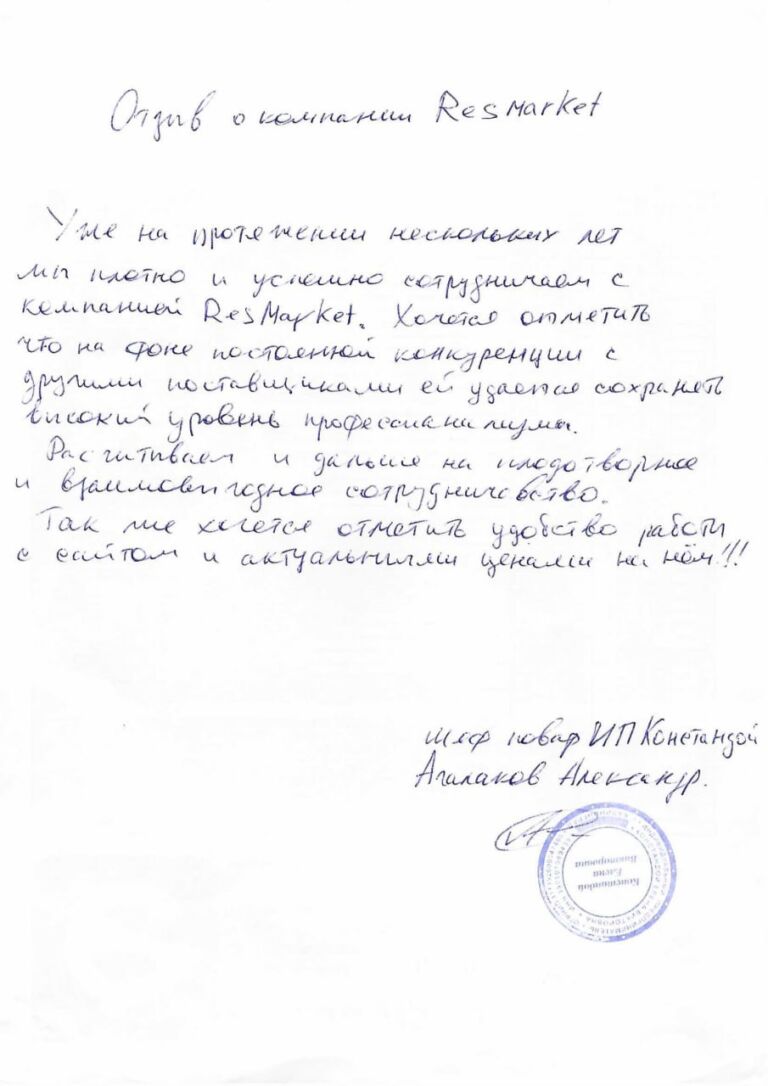 Отзыв о компании ResMarket
Уже на протяжении нескольких лет
мы плотно и успешно сотрудничаем с
компанией ResMarket. Хочется отметить
что на фоне постоянной конкуренции с
другими поставщиками ей удается сохранять
высокий уровень профессианализма.
Расчитываем и дальше на плодотворное
и взаимовыгодное сотрудничевство.
Так же хочется отметить удобство работы
с сайтом и актуальными ценами на нём!!!
шеф повар ИП Констандой
Агалаков Александр.
Констандой
Елена
Викторовна